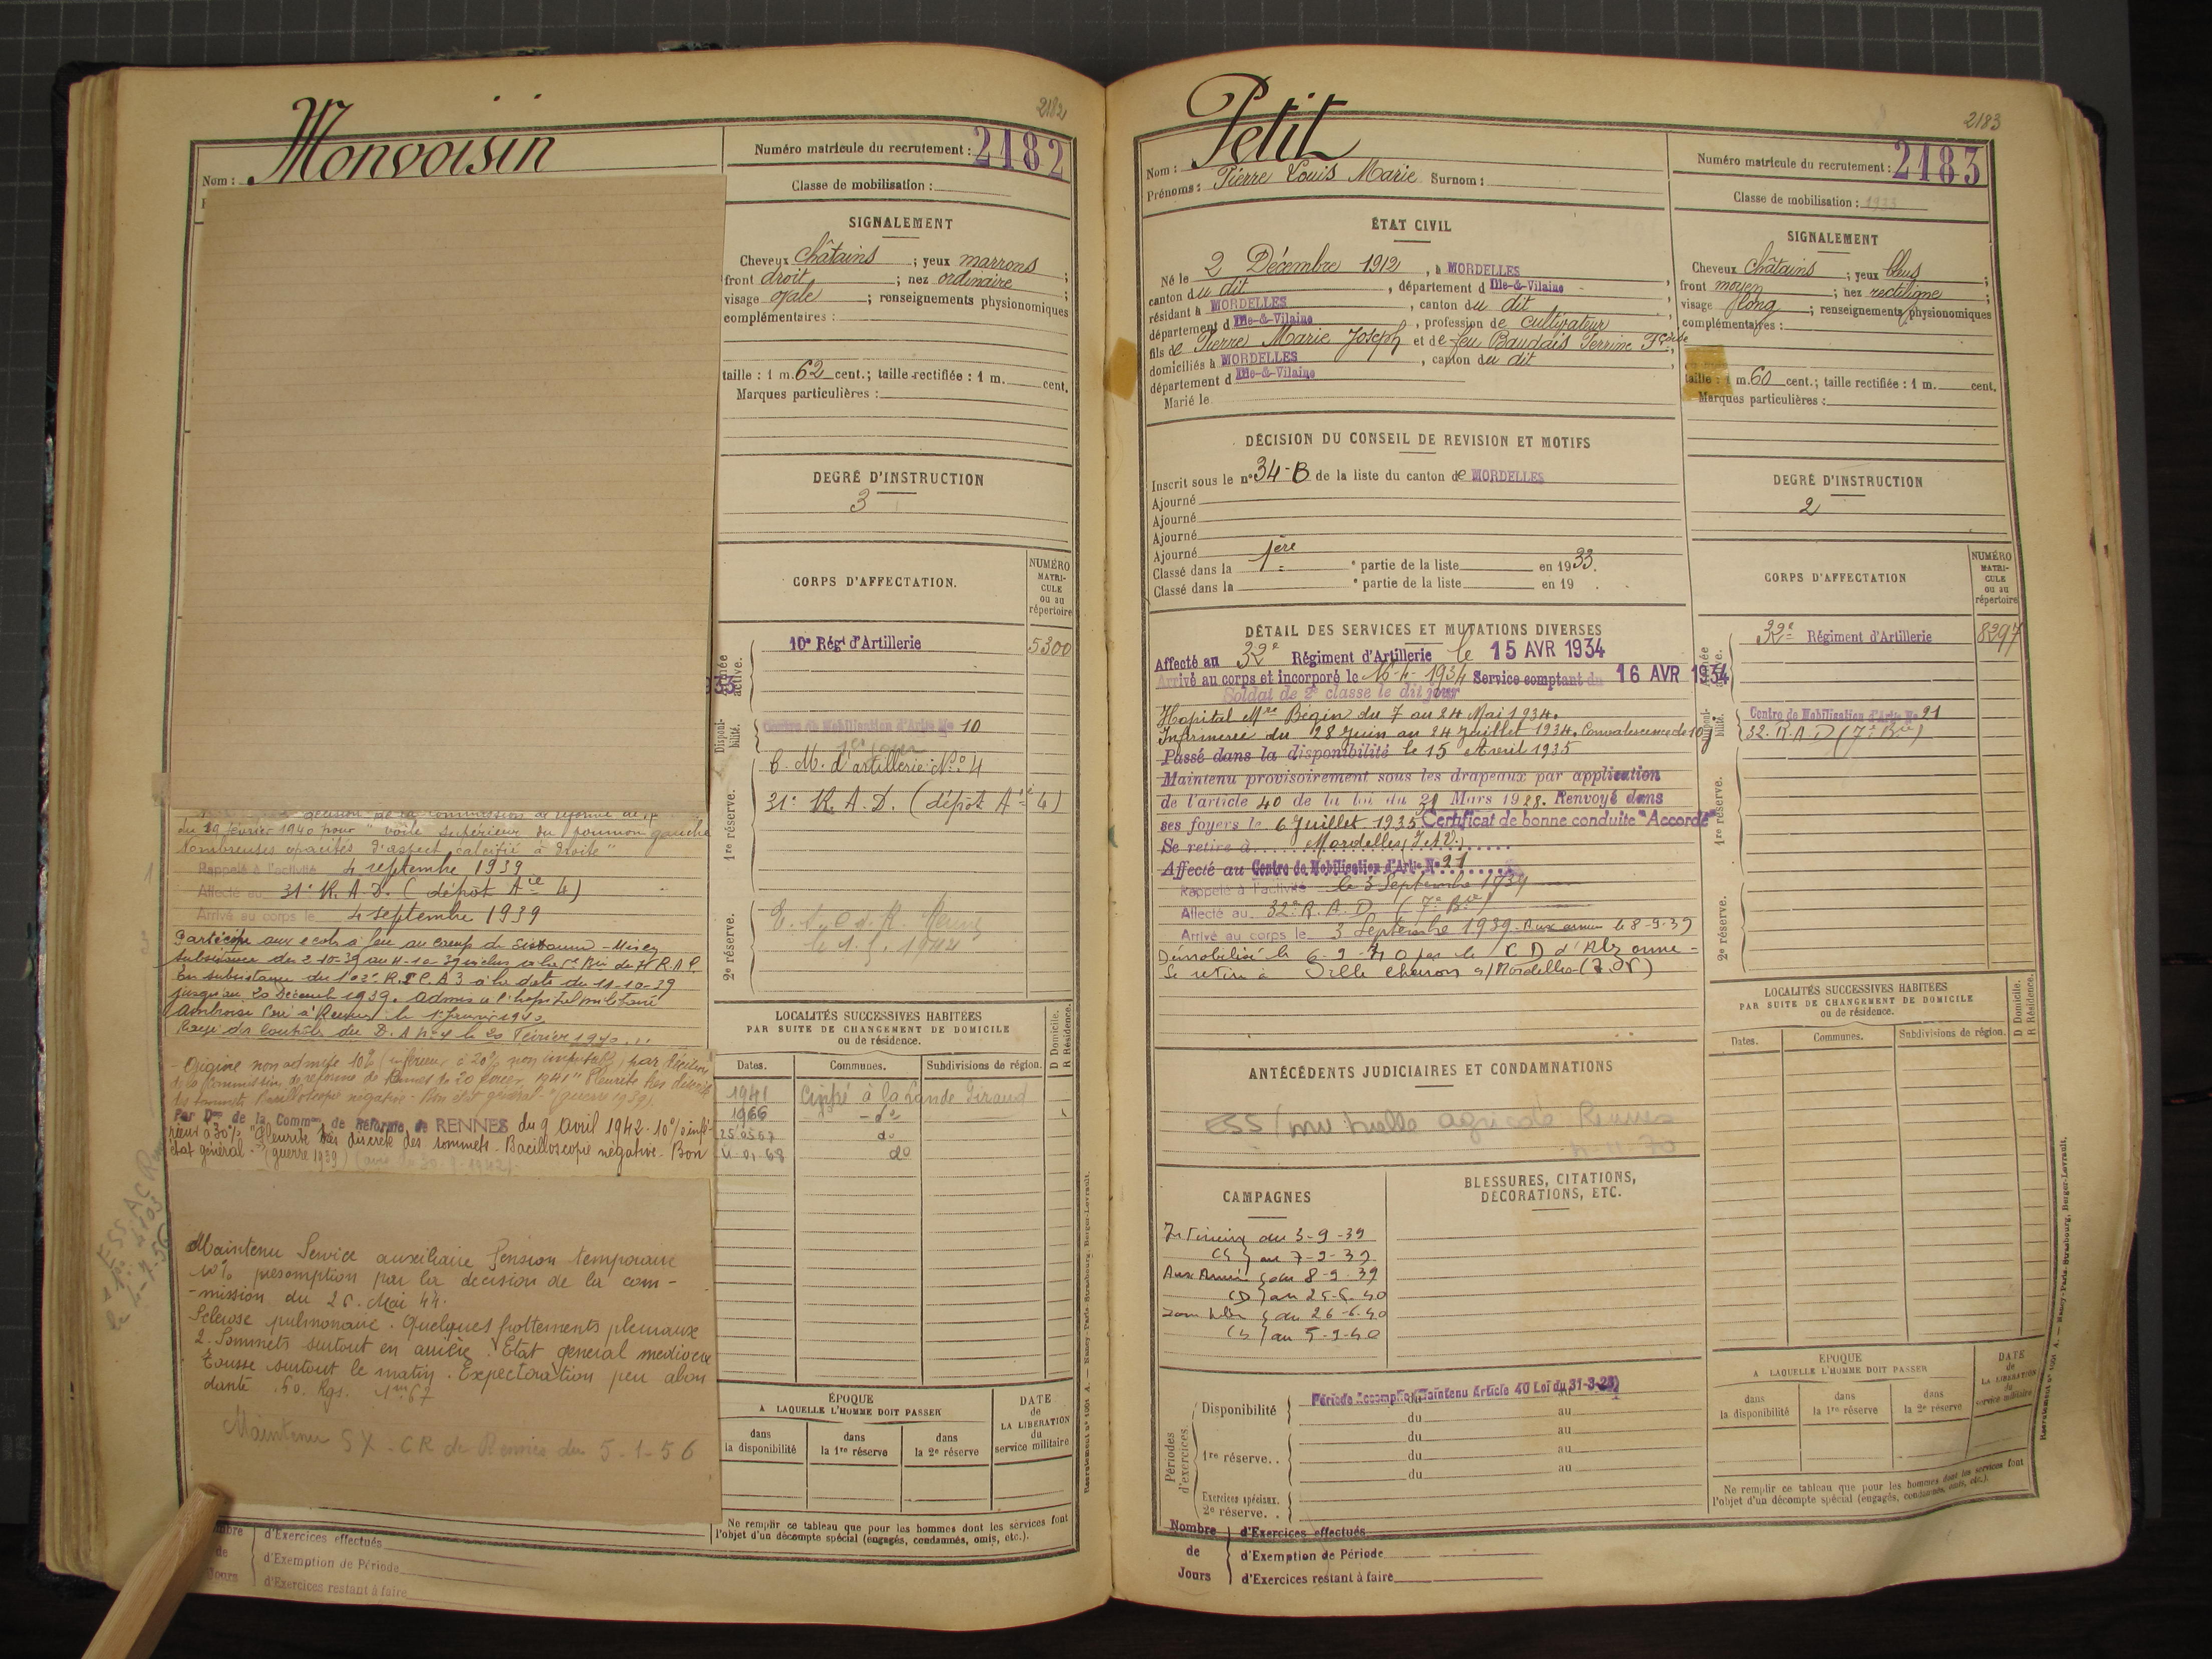 2182
Monvoisin
Nom :
Numéro matricule du recrutement : 2182
Classe de mobilisation :
SIGNALEMENT
Cheveux châtains ; yeux marrons ;
front droit ; nez ordinaire ;
visage ovale ; renseignements physionomiques
complémentaires :
taille : 1 m. 62 cent. ; taille rectifiée : 1 m. cent.
Marques particulières :
DEGRÉ D'INSTRUCTION
3
CORPS D'AFFECTATION.
NUMÉRO
MATRI-
CULE
ou au
répertoire
active.
10e Régt d'Artillerie 5300
Disponi-
bilité.
Centre de Mobilisation d'Artie No 10
1re réserve.
C. M. d'artillerie No 4
31e R. A. D. (dépôt Aie 4)
2e réserve.
décision de la commission de réforme de
du 19 février 1940 pour "voile supérieur du poumon gauche
nombreuses opacités d'aspect calcifié à droite"
Rappelé à l'activité 4 septembre 1939
Affecté au 31e R. A. D. (dépôt Aie 4)
Arrivé au corps le 4 septembre 1939
Participe aux écoles à feu au camp de
jusqu'au 20 Décembre 1939. Admis à l'hôpital militaire
Ambroise Paré à Rennes le 1 Janvier 1940
Rayé des contrôles du D. A. No 4 le 20 Février 1940
- Origine non admise 10% (inférieur à 20% non imputable) par décision
de la Commission de réforme de Rennes du 20 février 1941 "Pleurite très discrète
des sommets Bacilloscopie négative - Bon état général - (guerre 1939)
Par Don de la Common de Réforme de RENNES du 9 avril 1942. 10% infé-
rieur à 30% "Pleurite très discrète des sommets. Bacilloscopie négative. Bon
état général - (guerre 1939)
Maintenu Service auxiliaire Pension temporaire
10% présomption par la décision de la com-
-mission du 26. Mai 44.
Sclérose pulmonaire. Quelques frottements pleuraux
2 Sommets surtout en arrière. Etat général médiocre
Tousse surtout le matin. Expectoration peu abon
dante. 50. Kgs. 1m67
Maintenu SX CR de Rennes du 5-1-56
LOCALITÉS SUCCESSIVES HABITÉES
PAR SUITE DE CHANGEMENT DE DOMICILE
ou de résidence.
D Domicile.
R Résidence.
Dates. Communes. Subdivisions de région.
1941 Cintré à la Lande Giraud
1966 - do
25 05 67 do
do
ÉPOQUE
A LAQUELLE L'HOMME DOIT PASSER
dans
la disponibilité
dans
la 1re réserve
dans
la 2e réserve
DATE
de
LA LIBÉRATION
du
service militaire
Ne remplir ce tableau que pour les hommes dont les services font
l'objet d'un décompte spécial (engagés, condamnés, omis, etc.).
Nombre
de
Jours
d'Exercices effectués
d'Exemption de Période
d'Exercices restant à faire
2183
Nom : Petit
Prénoms : Pierre Louis Marie Surnom :
Numéro matricule du recrutement : 2183
Classe de mobilisation : 1933
ÉTAT CIVIL
Né le 2 Décembre 1912, à MORDELLES
canton du dit, département d Ille-&-Vilaine
résidant à MORDELLES, canton du dit
département d Ille-&-Vilaine, profession de cultivateur
fils de Pierre Marie Joseph et de feu Baudais Perrine Fçoise
domiciliés à MORDELLES, canton du dit
département d Ille-&-Vilaine
Marié le
SIGNALEMENT
Cheveux châtains ; yeux bleus ;
front moyen ; nez rectiligne ;
visage long ; renseignements physionomiques
complémentaires :
taille : 1 m. 60 cent. ; taille rectifiée : 1 m. cent.
Marques particulières :
DÉCISION DU CONSEIL DE REVISION ET MOTIFS
Inscrit sous le no 34-B de la liste du canton de MORDELLES
Ajourné
Ajourné
Ajourné
Ajourné
Classé dans la 1ère e partie de la liste en 1933.
Classé dans la e partie de la liste en 19 .
DEGRÉ D'INSTRUCTION
2
DÉTAIL DES SERVICES ET MUTATIONS DIVERSES
Affecté au 32e Régiment d'Artillerie le 15 AVR 1934
Arrivé au corps et incorporé le 16-4-1934 Service comptant du 16 AVR 1934
Soldat de 2e classe le dit jour
Hopital Mre Bégin du 7 au 24 Mai 1934.
Infirmerie du 28 Juin au 24 Juillet 1934. Convalescence de 10 j
Passé dans la disponibilité le 15 Avril 1935
Maintenu provisoirement sous les drapeaux par application
de l'article 40 de la loi du 31 Mars 1928. Renvoyé dans
ses foyers le 6 Juillet 1935 Certificat de bonne conduite "Accordé"
Se retire à Mordelles (I et V)
Affecté au Centre de Mobilisation d'Artie No 21
Rappelé à l'activité le 3 Septembre 1939
Affecté au 32e R. A. D (7e Bie)
Arrivé au corps le 3 Septembre 1939. Aux armées le 8-9-39
Démobilisé le 6-9-40 par le C D d'Alzonne -
Se retire à Ville s/Mordelles (I.V)
CORPS D'AFFECTATION
NUMÉRO
MATRI-
CULE
ou au
répertoire
32e Régiment d'Artillerie 8297
Centre de Mobilisation d'Artie No 21
32. R.A.D (7e Bie)
1re réserve.
2e réserve.
ANTÉCÉDENTS JUDICIAIRES ET CONDAMNATIONS
ESS / mutuelle agricole Rennes
11-70
CAMPAGNES
Intérieur du 3-9-39
(CS) au 7-9-39
Aux Armées du 8-9-39
(CD) au 25-6-40
du 26-6-40
(CS) au 5-9-40
BLESSURES, CITATIONS,
DÉCORATIONS, ETC.
LOCALITÉS SUCCESSIVES HABITÉES
PAR SUITE DE CHANGEMENT DE DOMICILE
ou de résidence.
D Domicile.
R Résidence.
Dates. Communes. Subdivisions de région.
Périodes
d'exercices.
Disponibilité
Période Accomplie (Maintenu Article 40 Loi du 31-3-28)
du au
du au
1re réserve. .
du au
du au
Exercices spéciaux.
2e réserve. .
ÉPOQUE
A LAQUELLE L'HOMME DOIT PASSER
dans
la disponibilité
dans
la 1re réserve
dans
la 2e réserve
DATE
de
LA LIBÉRATION
du
service militaire
Ne remplir ce tableau que pour les hommes dont les services font
l'objet d'un décompte spécial (engagés, condamnés, omis, etc.).
Nombre
de
Jours
d'Exercices effectués
d'Exemption de Période
d'Exercices restant à faire